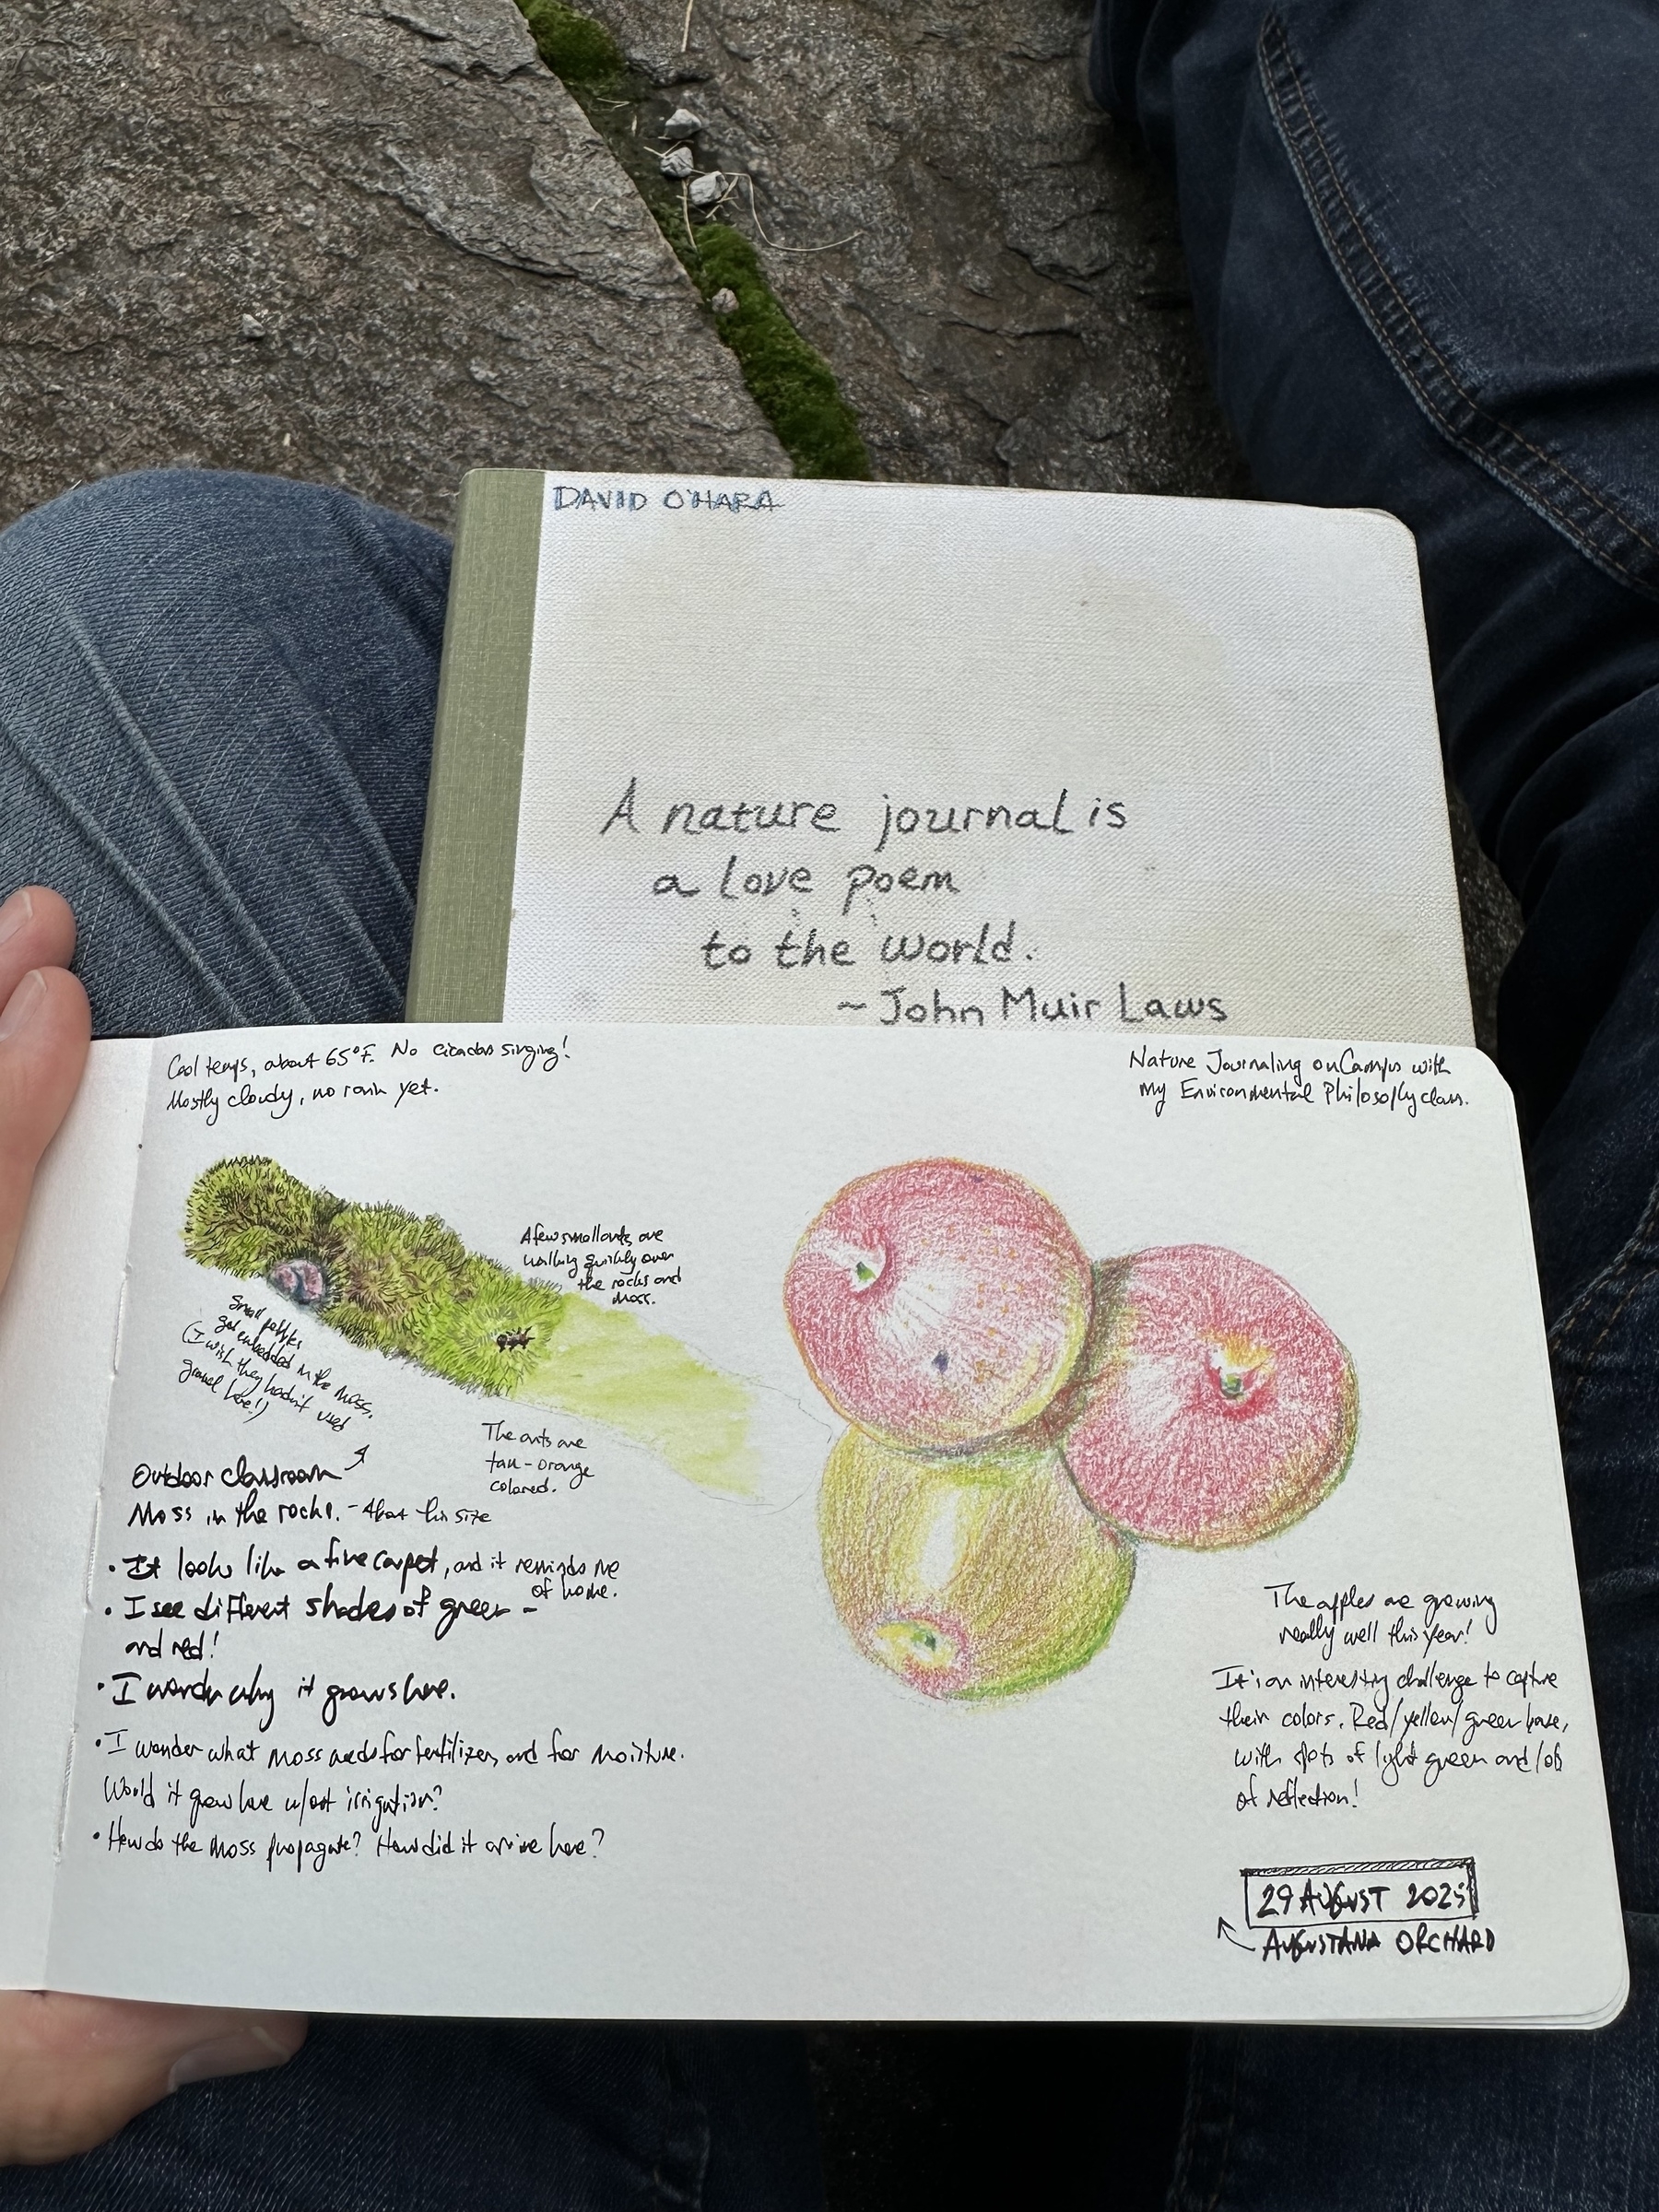 DAVID O'HARA
A nature journal is
a love poem
to the world.
~ John Muir Laws
Cool temps, about 65°F. No cicadas singing!
Mostly cloudy, no rain yet.
Nature Journaling on Campus with
my Environmental Philosophy class.
A few small ants are
walking quickly over
the rocks and
moss.
Small pebbles
get embedded in the moss.
(I wish they hadn't used
gravel here!)
The ants are
tan-orange
colored.
Outdoor classroom
Moss in the rocks. - About this size
• It looks like a fine carpet, and it reminds me
of home.
• I see different shades of green -
and red!
• I wonder why it grows here.
• I wonder what moss needs for fertilizer, and for moisture.
Would it grow here w/out irrigation?
• How do the moss propagate? How did it arrive here?
The apples are growing
really well this year!
It is an interesting challenge to capture
their colors. Red/yellow/green base,
with spots of light green and lots
of reflection!
29 AUGUST 2025
AUGUSTANA ORCHARD